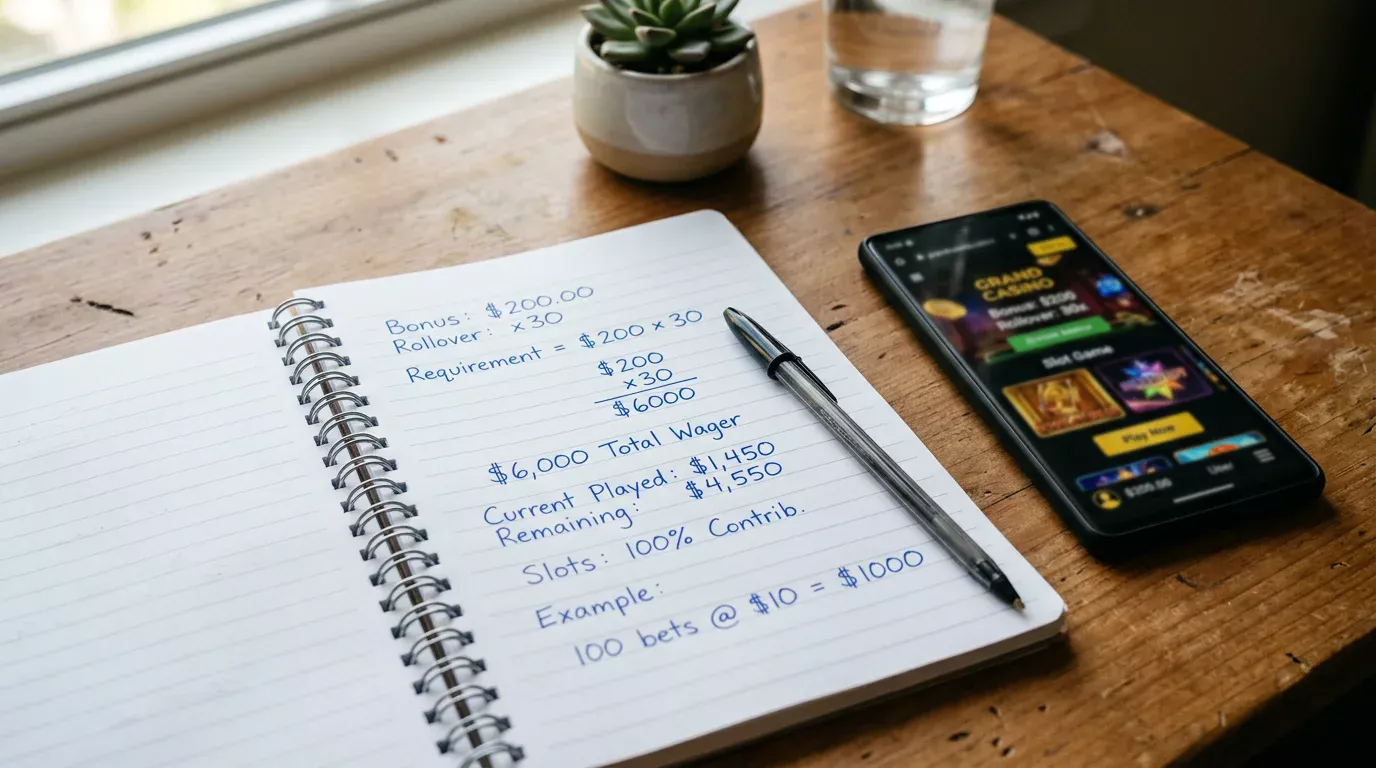 Bonus: $200.00
Rollover: ×30
Requirement = $200 × 30
$200
×30
$6000
$6,000 Total Wager
Current Played: $1,450
Remaining: $4,550
Slots: 100% Contrib.
Example:
100 bets @ $10 = $1000
GRAND
CASINO
Bonus: $200
Rollover: 30x
Slot Game
Play Now
$200.00